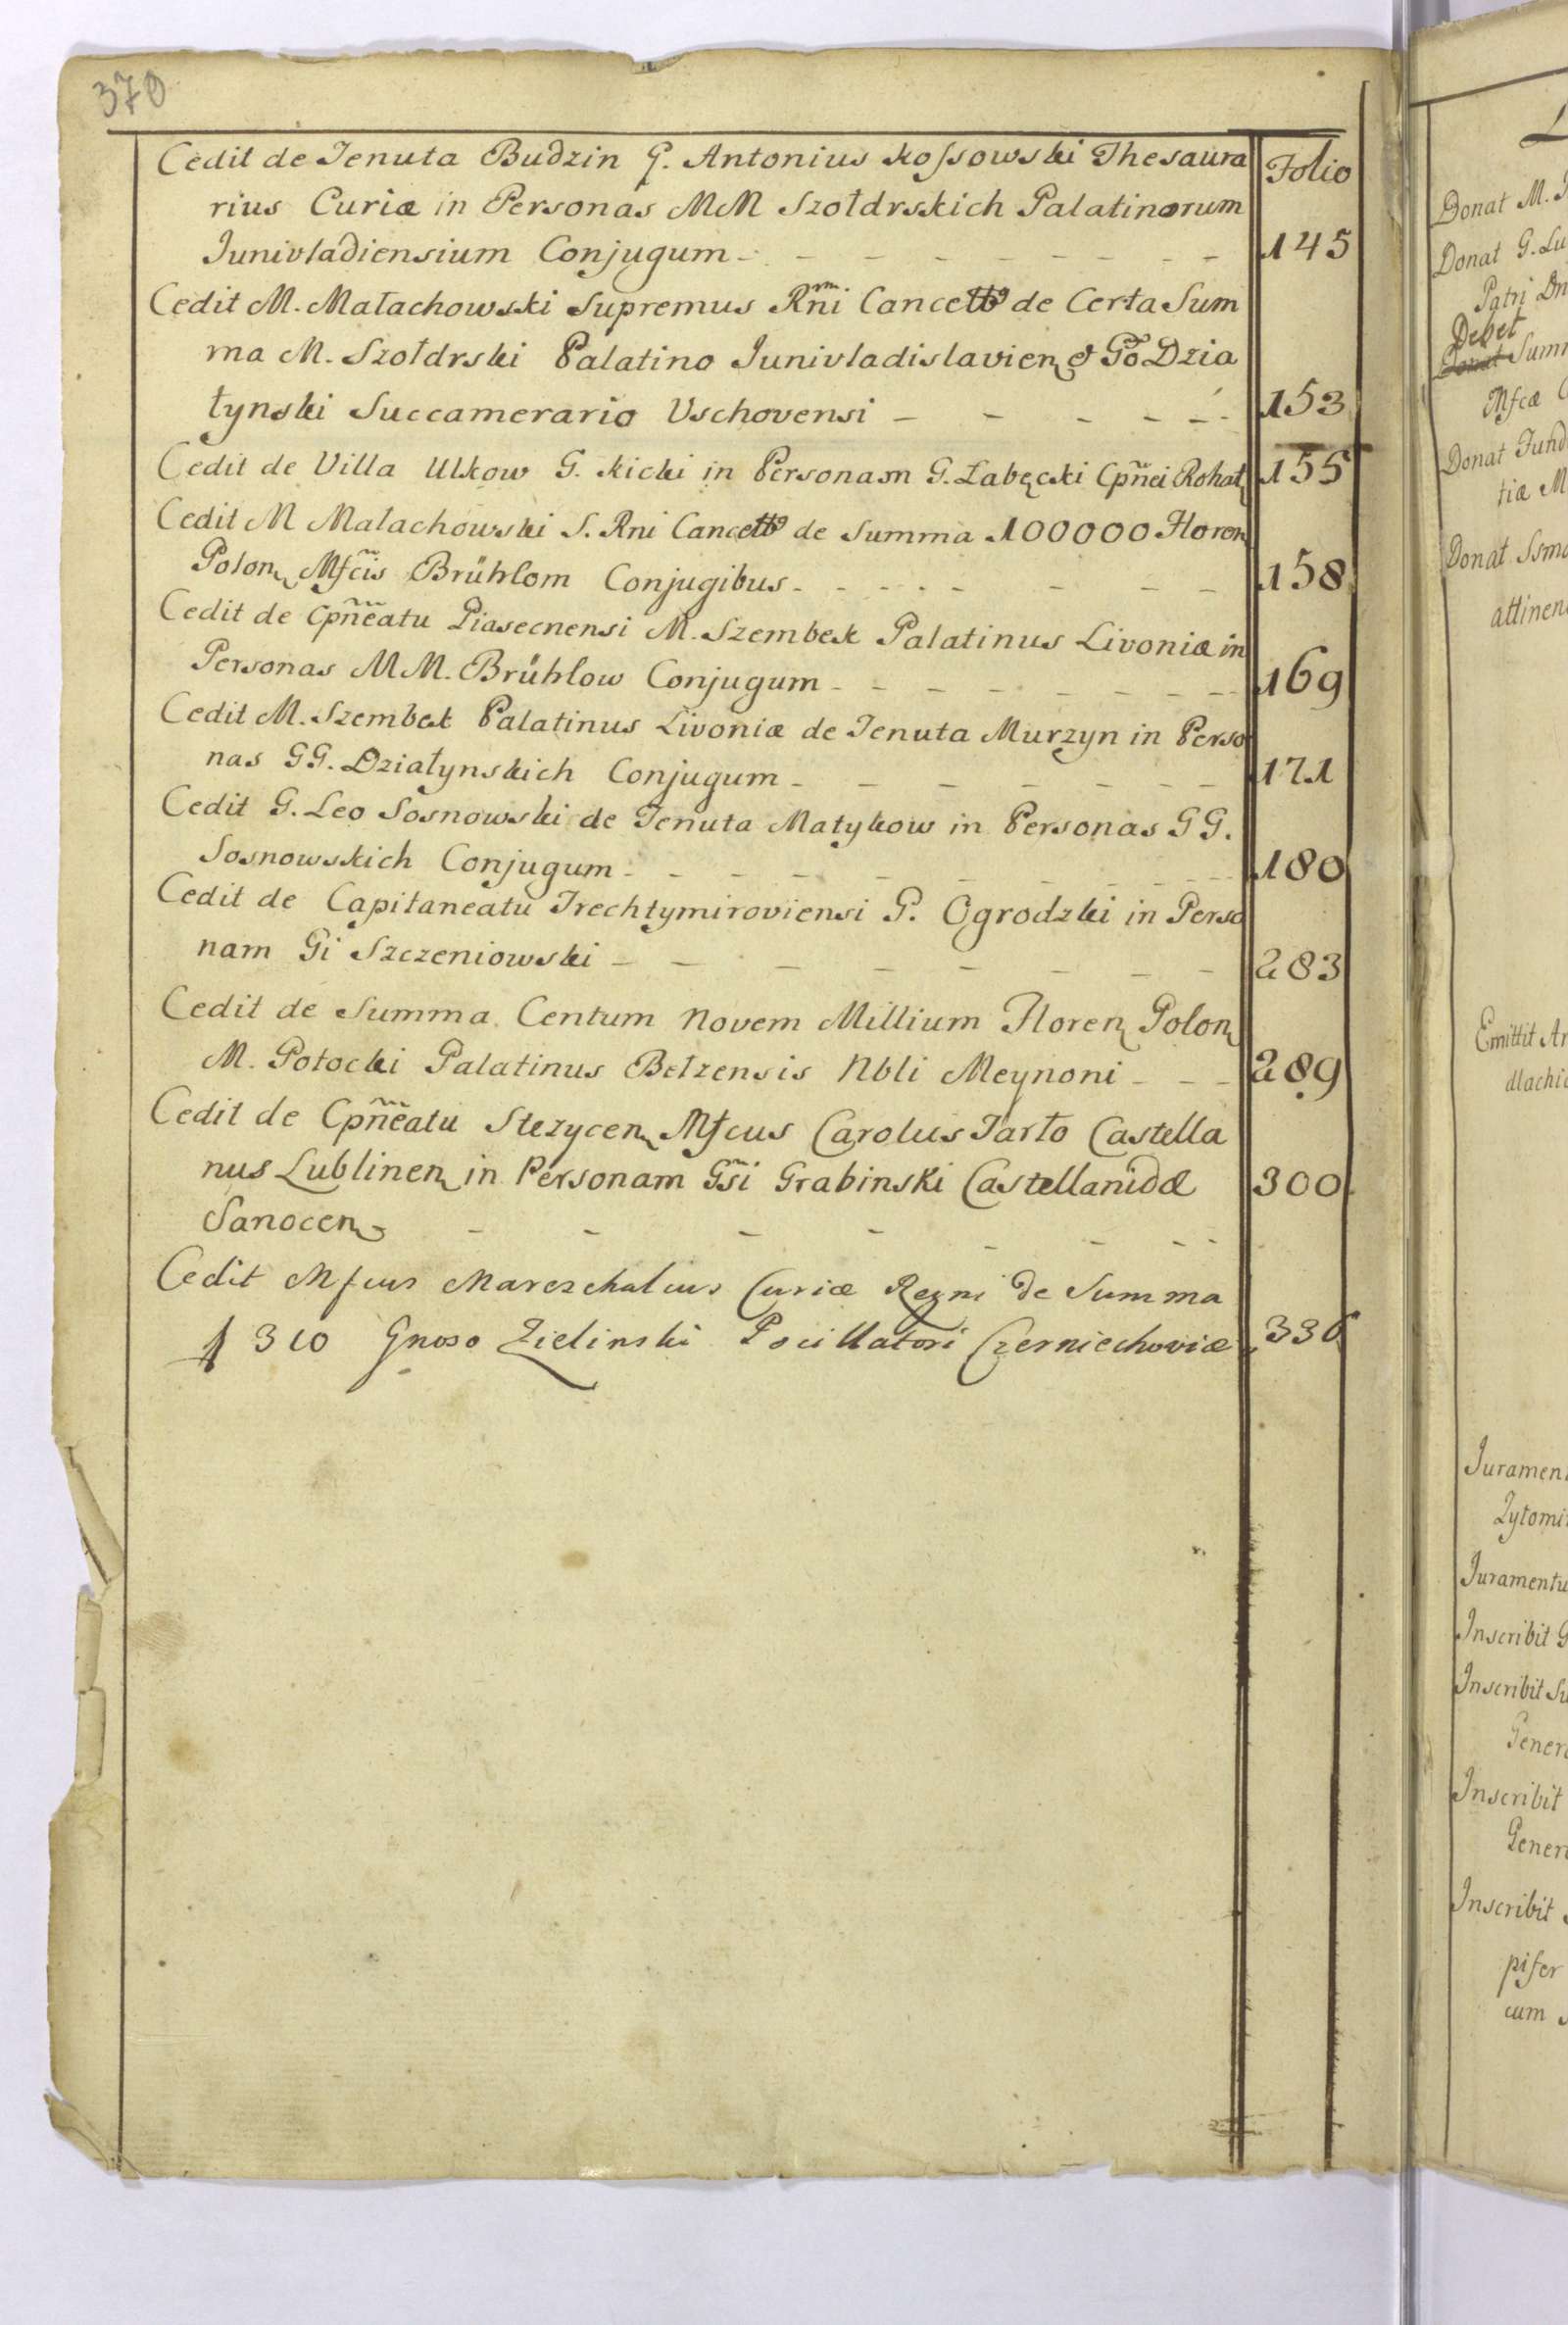 370
Folio
Cedit de Tenuta Budzin G. Antonius Kossowski Thesaura
rius Curiæ in Personas MM Szołdrskich Palatinorum
Junivladiensium Conjugum - - - - - - - - 145
Cedit M. Małachowski Supremus Rni Cancell9 de Certa Sum
ma M. Szołdrski Palatino Junivladislavien & Go Dzia
łynski Succamerario Uschovensi - - - - - 153
Cedit de Villa Ulkow G. Kicki in Personam G. Łabęcki Cpnei Rohat 155
Cedit M Małachowski S. Rni Cancell9 de Summa 100000 Floren
Polon Mfcis Brühlom Conjugibus - - - - - - - - 158
Cedit de Cpneatu Piasecnensi M. Szembek Palatinus Livoniæ in
Personas MM. Brühlow Conjugum - - - - - - - - 169
Cedit M. Szembek Palatinus Livoniæ de Tenuta Murzyn in Perso
nas GG. Działynskich Conjugum - - - - - - - 171
Cedit G. Leo Sosnowski de Tenuta Matykow in Personas GG.
Sosnowskich Conjugum - - - - - - - - - 180
Cedit de Capitaneatu Trechtymiroviensi G. Ogrodzki in Perso
nam Gi Szczeniowski - - - - - - - - 283
Cedit de Summa Centum Novem Millium Floren Polon
M. Potocki Palatinus Bełzensis Nbli Meynoni - - - 289
Cedit de Cpneatu Stezycen Mfcus Carolus Tarło Castella
nus Lublinen in Personam Gsi Grabinski Castellanidæ 300
Sanocen - - - - - - - - -
Cedit Mfcus Mareschalcus Curiæ Regni de Summa
f 310 Gnoso Zielinski Pocillatori Czerniechoviæ 330
Donat M.
Donat G. Lu
Patri Dn
Debet
Donat Sum
Mfcæ
Donat Fund
tiæ M
Donat Ssmo
attinen
Emittit Ar
dlachi
Juramen
Zytomi
Juramentu
Inscribit G
Inscribit Su
Gener
Inscribit
Gener
Inscribit
piser
cum